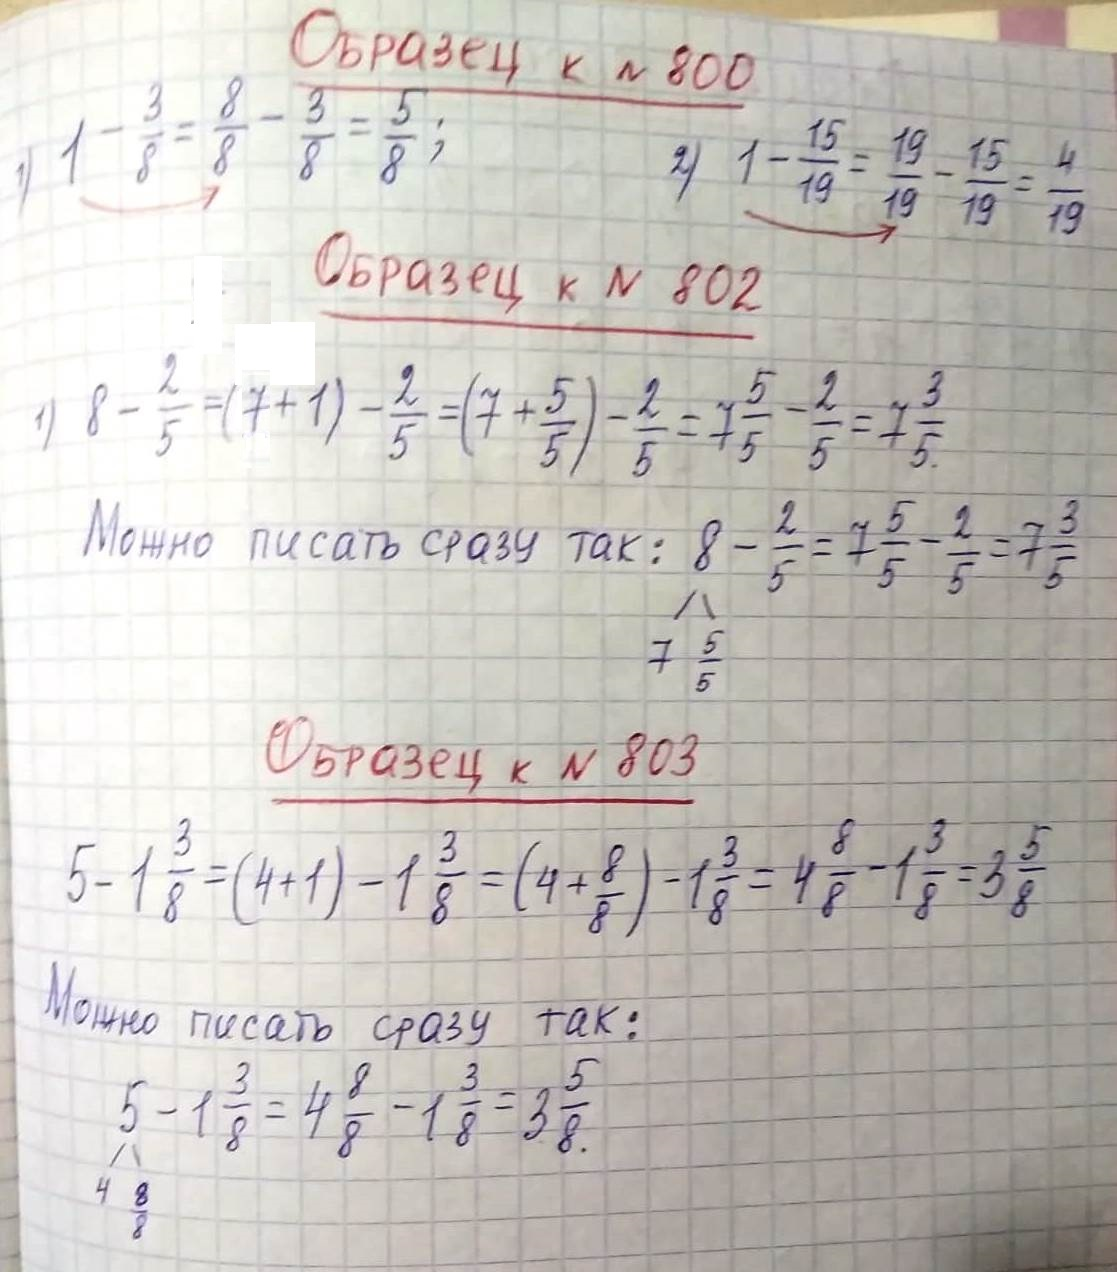 Образец к № 800
1) 1 - 3/8 = 8/8 - 3/8 = 5/8; 2) 1 - 15/19 = 19/19 - 15/19 = 4/19
Образец к № 802
1) 8 - 2/5 = (7+1) - 2/5 = (7 + 5/5) - 2/5 = 7 5/5 - 2/5 = 7 3/5.
Можно писать сразу так: 8 - 2/5 = 7 5/5 - 2/5 = 7 3/5
7 5/5
Образец к № 803
5 - 1 3/8 = (4+1) - 1 3/8 = (4 + 8/8) - 1 3/8 = 4 8/8 - 1 3/8 = 3 5/8
Можно писать сразу так:
5 - 1 3/8 = 4 8/8 - 1 3/8 = 3 5/8.
4 8/8